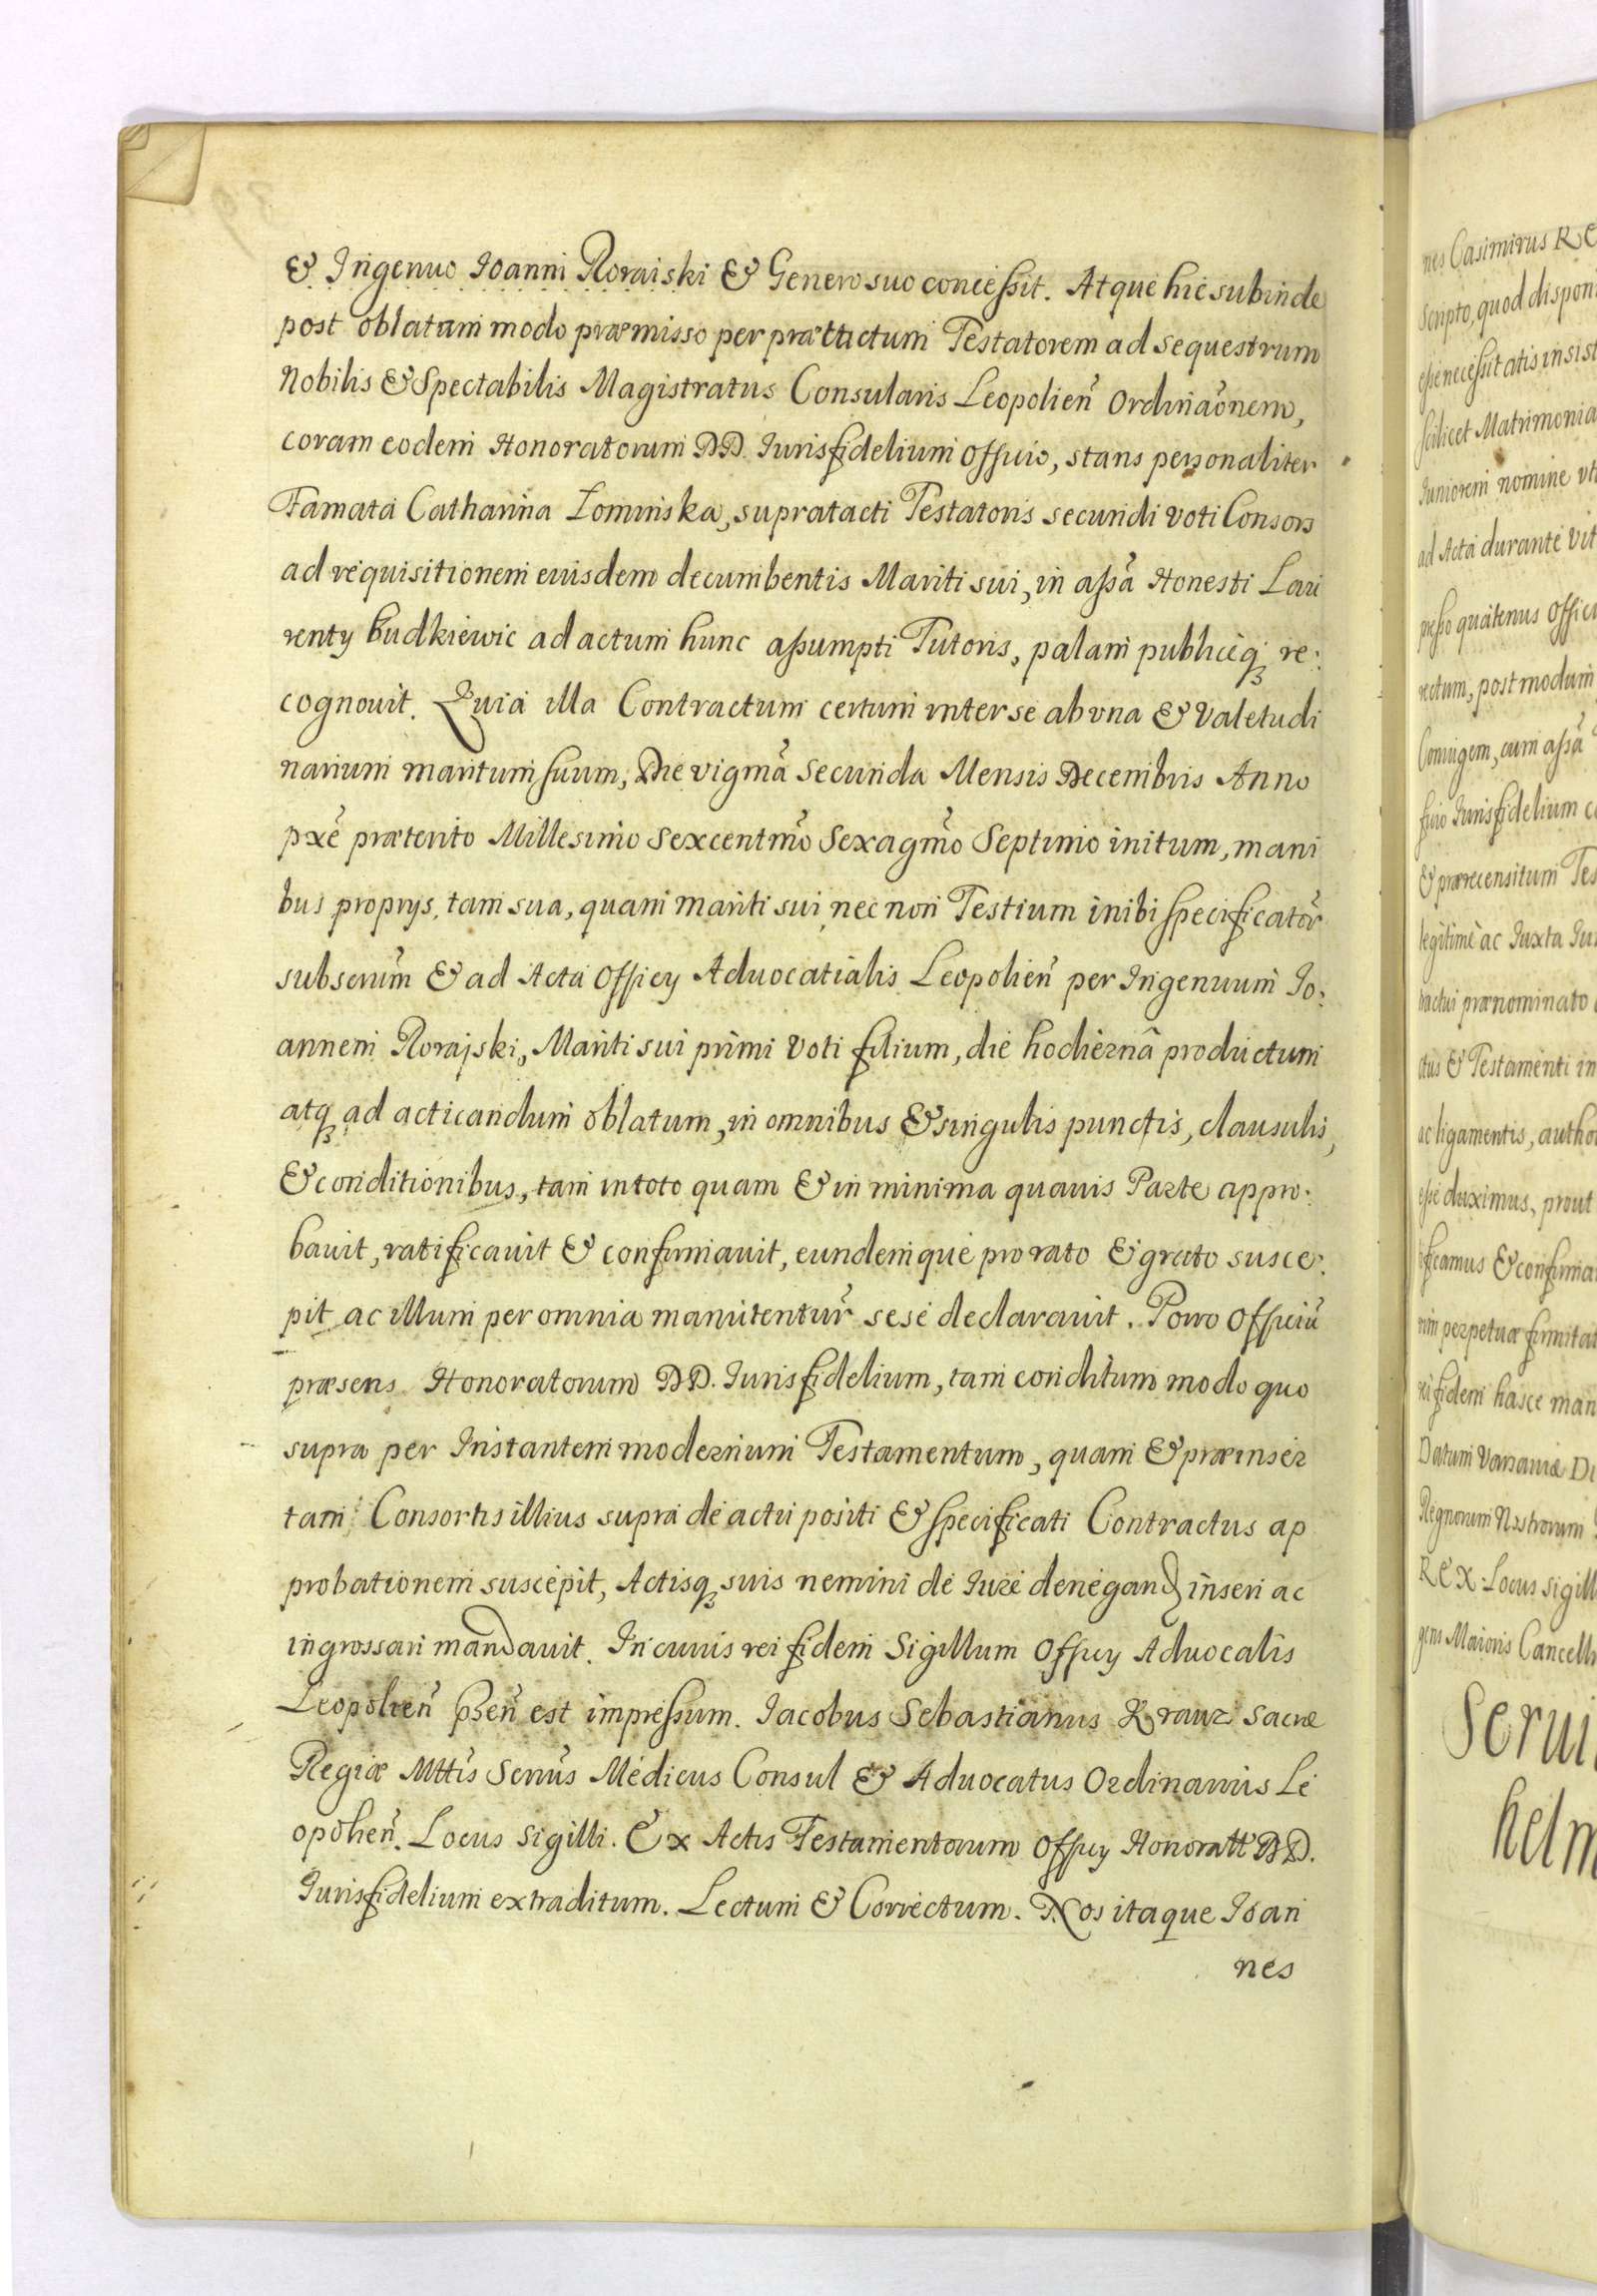 & Ingenuo Ioanni Roraiski & Genero suo concessit. Atque hic subinde
post oblatum modo præmisso per prætactum Testatorem ad sequestrum
Nobilis & Spectabilis Magistratus Consularis Leopolien̄ Ordinaōnem,
coram eodem Honoratorum DD. Iurisfidelium Officio, stans personaliter
Famata Catharina Łominska, supratacti Testatoris secundi voti Consors
ad requisitionem eiusdem decumbentis Mariti sui, in assā Honesti Lau
renty Budkiewic ad actum hunc assumpti Tutoris, palam publiceq re:
cognouit. Quia illa Contractum certum inter se ab vna & Valetudi
narium maritum suum, Die vigmā secunda Mensis Decembris Anno
pxē præterito Millesimo Sexcentmō Sexagmō Septimo initum, mani
bus proprys, tam sua, quam mariti sui, nec non Testium inibi specificatōr
subscrum̄ & ad Acta Officy Aduocatialis Leopolien̄ per Ingenuum Io:
annem Rorajski, Mariti sui primi Voti filium, die hodiernâ productum
atq ad acticandum oblatum, in omnibus & singulis punctis, clausulis,
& conditionibus, tam in toto quam & in minima quauis Parte appro:
bauit, ratificauit & confirmauit, eundemque pro rato & grato susce:
pit ac illum per omnia manutentur̄ sese declarauit. Porro Officiū
præsens Honoratorum DD. Iurisfidelium, tam conditum modo quo
supra per Instantem modernum Testamentum, quam & præinser
tam Consortis illius supra de actu positi & specificati Contractus ap
probationem suscepit, Actisq suis nemini de Iure denegand inseri ac
ingrossari mandauit. In cuius rei fidem Sigillum Officy Aduocalis
Leopolien̄ p̄sen̄ est impressum. Iacobus Sebastianus Krauz Sacræ
Regiæ Mttis Seruus Medicus Consul & Aduocatus Ordinarius Le
opolien̄. Locus Sigilli. Ex Actis Testamentorum Officy Honoratt DD.
Iurisfidelium extraditum. Lectum & Correctum. Nos itaque Ioan
nes
nes Casimirus Re
scripto, quod dispon
esse necessitatis insist
scilicet Matrimonia
Iuniorem nomine vt
ad Acta durante vit
presso quatenus Offici
rectum, postmodum
Coniugem, cum assā
ficio Iurisfidelium c
& prærecensitum Tes
legitimè ac Iuxta Iur
tractui prænominato
ctus & Testamenti in
ac ligamentis, autho
esse duximus, prout
ificamus & confirma
rim perpetuæ firmitat
rei fidem hasce man
Datum Varsauiæ Di
Regnorum Nostrorum
Rex. Locus sigill
gens Maioris Cancell
Serui
helm